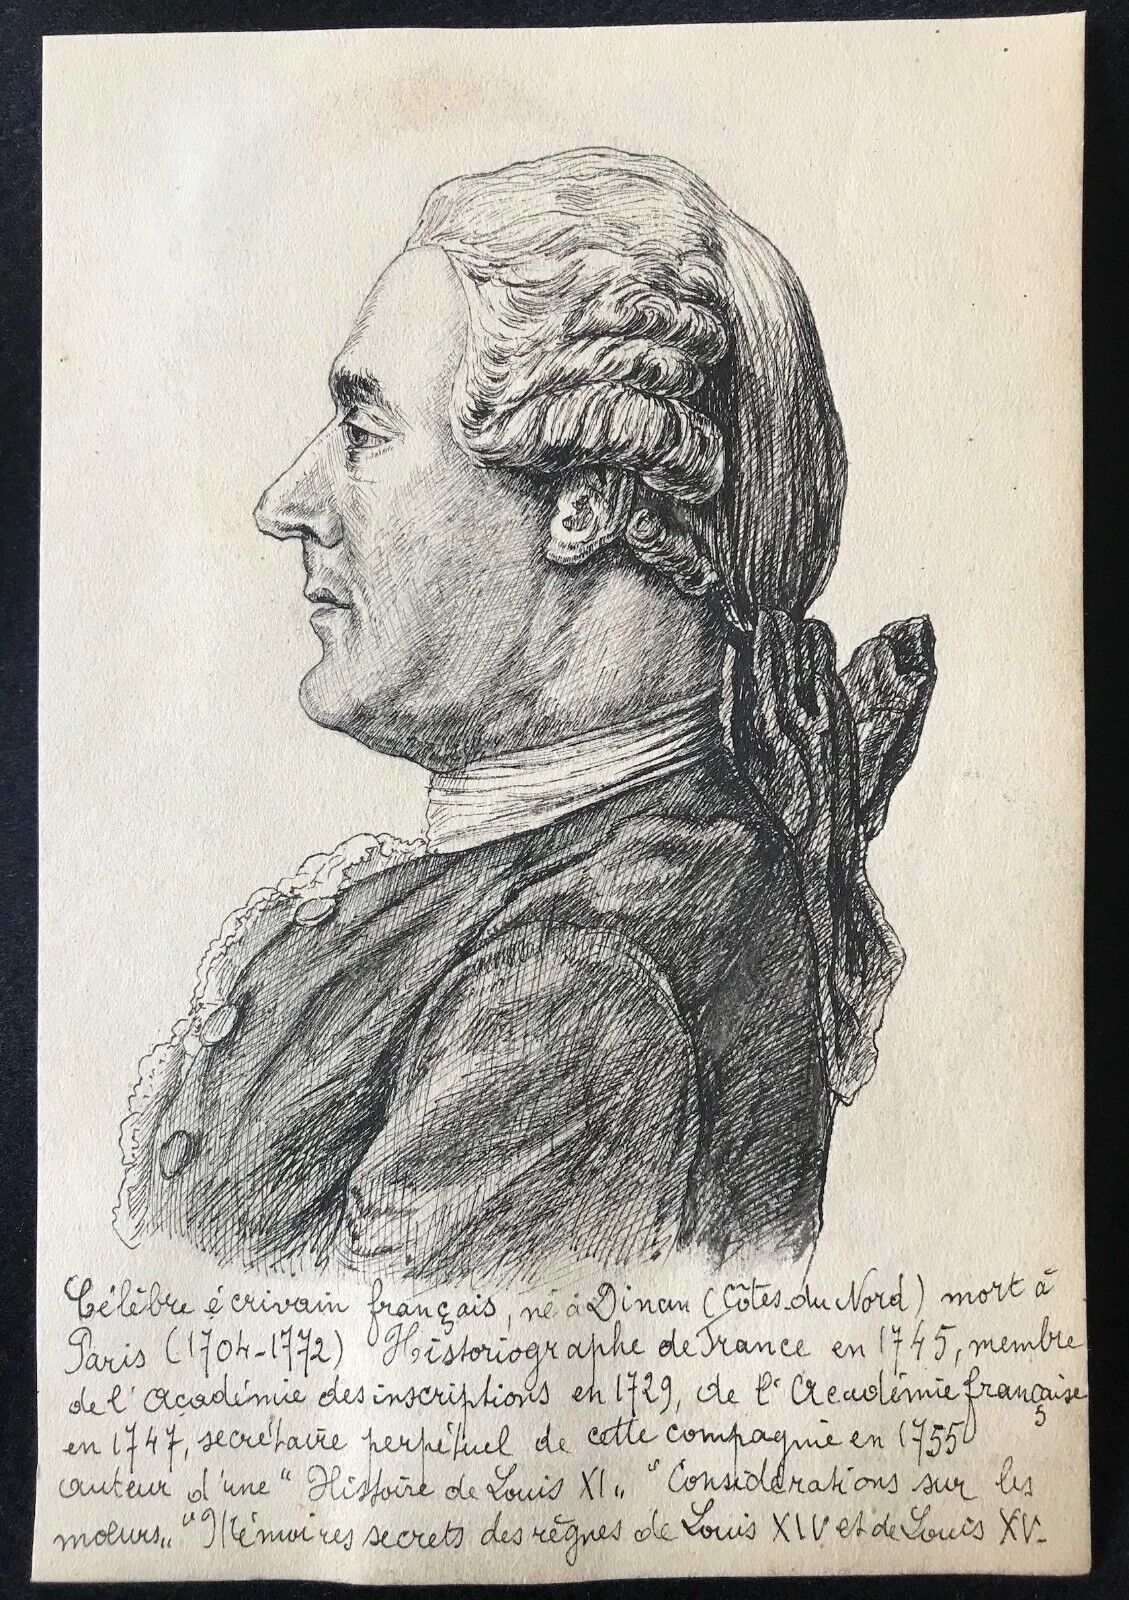 Célèbre écrivain français, né à Dinan (Côtes du Nord) mort à
Paris (1704-1772) Historiographe de France en 1745, membre
de l'Académie des inscriptions en 1729, de l'Académie française
en 1747, secrétaire perpétuel de cette compagnie en 1755
auteur d'une "Histoire de Louis XI„ "Considérations sur les
mœurs„ "Mémoires secrets des règnes de Louis XIV et de Louis XV-